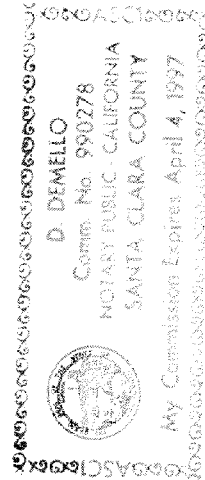 D. DEMELLO
Comm. No. 990278
NOTARY PUBLIC - CALIFORNIA
SANTA CLARA COUNTY
My Commission Expires April 4, 1997